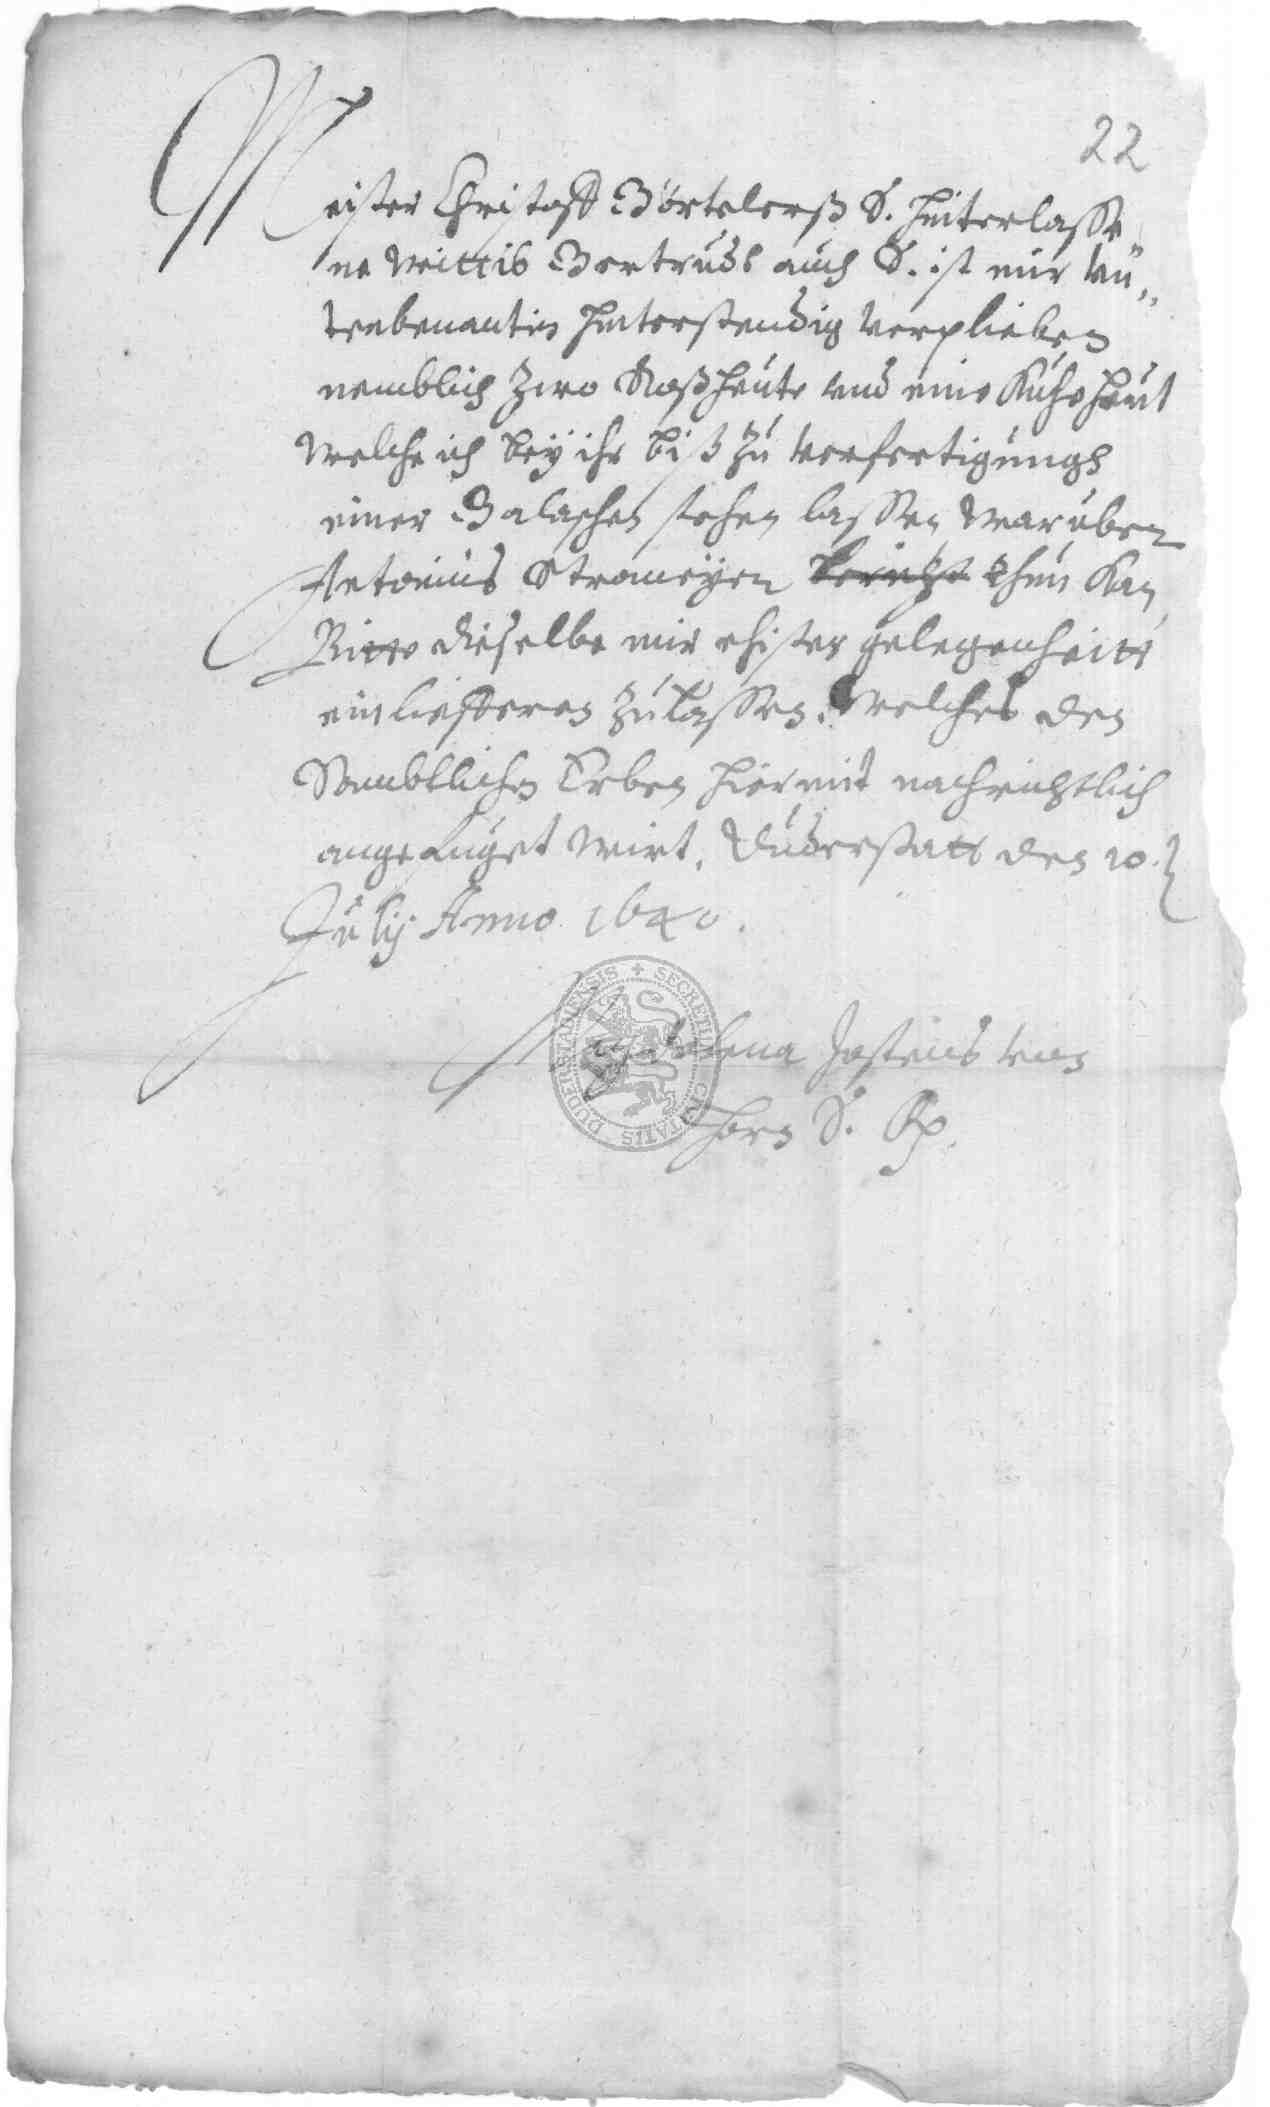 22
Meister Christoff Görtelerß S. hinterlasse„
ne Wittib Gertrudt auch S. ist mir Un„
terbenantin hinterstendig verplieben
nemblich Zwo Roßheute und eine Kuhehaut
welche ich bey ihr biß zu verfertigungh
einer Galaschen stehen lassen waruber
Antonius Stromeyer bericht thun kan
Bitte dieselbe mir ehister gelegenheitt
einliefferen zulassen. Welches den
Sembtlichen Erben hiermit nachrichtlich
angefuget wirt. Duderstatt den 10.
July Anno 1640.
Magdalena Jostens von
Horn S. 
SECRETUM CIVITATIS DUDERSTADIENSIS